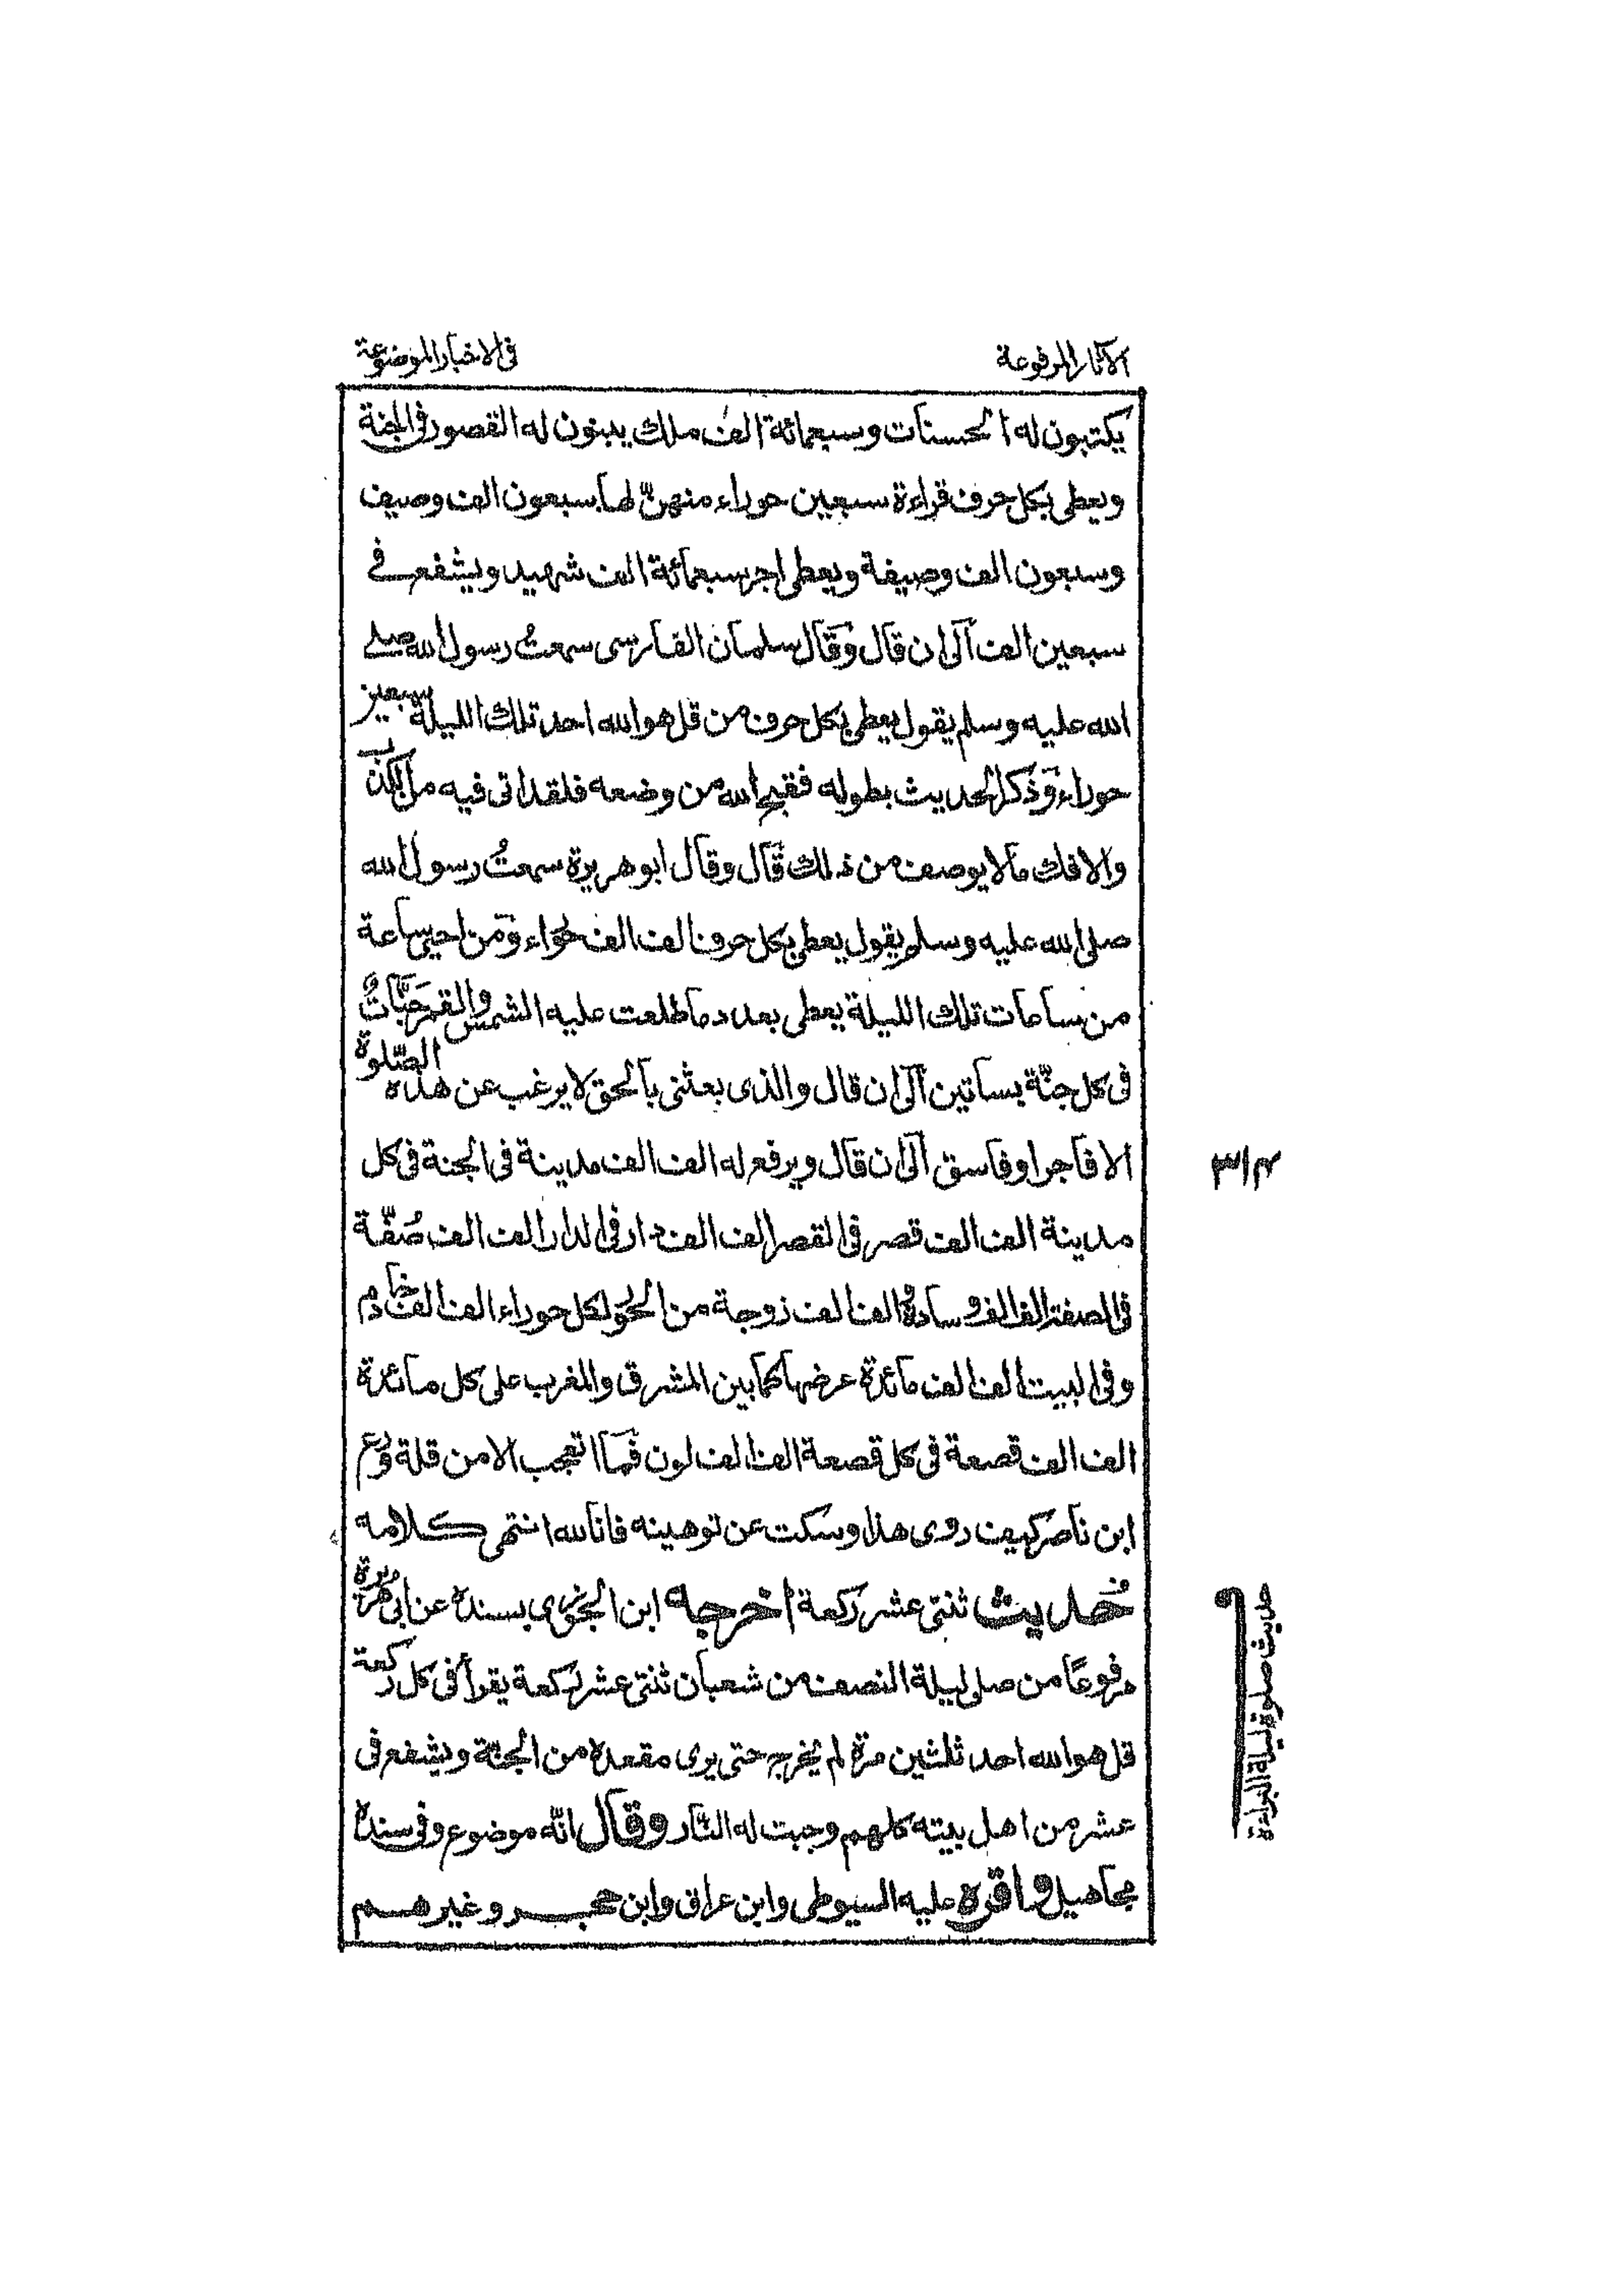 الآثار المرفوعة
فى الاخبار الموضوعة
يكتبون له الحسنات وسبعمائة الف ملك يبنون له القصور فى الجنة
ويعطى بكل حرف قراءة سبعين حوراء منهنّ لها سبعون الف وصيف
وسبعون الف وصيفة ويعطى اجر سبعمائة الف شهيد ويشفع فى
سبعين الف الى ان قال وقال سلمان الفارسى سمعتُ رسول الله صلى
الله عليه وسلم يقول يعطى بكل حرف من قل هو الله احد تلك الليلة سبعين
حوراء وذكر الحديث بطوله فقبح الله من وضعه فلقد اتى فيه من الكذب
والافك مالا يوصف من ذلك قال وقال ابو هريرة سمعتُ رسول الله
صلى الله عليه وسلم يقول يعطى بكل حرف الف الف حوراء ومن احيى ساعة
من ساعات تلك الليلة يعطى بعدد ما طلعت عليه الشمس والقمر جنّاتٌ
فى كل جنّة بساتين الى ان قال والذى بعثنى بالحق لا يرغب عن هذه الصّلوة
الا فاجر او فاسق الى ان قال ويرفع له الف الف مدينة فى الجنة فى كل
مدينة الف الف قصر فى القصر الف الف دار فى الدار الف الف صُفّة
فى الصفة الف الف وسادة و الف الف زوجة من الحور لكل حوراء الف الف خادم
وفى البيت الف الف مائدة عرضها كما بين المشرق والمغرب على كل مائدة
الف الف قصعة فى كل قصعة الف الف لون فما اتعجب الا من قلة ورع
ابن ناصر كيف روى هذا وسكت عن توهينه فانا لله انتهى كلامه
حديث ثنتى عشر ركعة اخرجه ابن الجوزى بسنده عن ابى هريرة
مرفوعًا من صلى ليلة النصف من شعبان ثنتى عشر ركعة يقرأ فى كل ركعة
قل هو الله احد ثلثين مرة لم يخرج حتى يرى مقعده من الجنّة ويشفع فى
عشر من اهل بيته كلهم وجبت له النّار وقال انّه موضوع وفى سنده
مجاهيل واقره عليه السيوطى وابن عراق وابن حجر وغيرهم
حديث صلوة ليلة البراءة